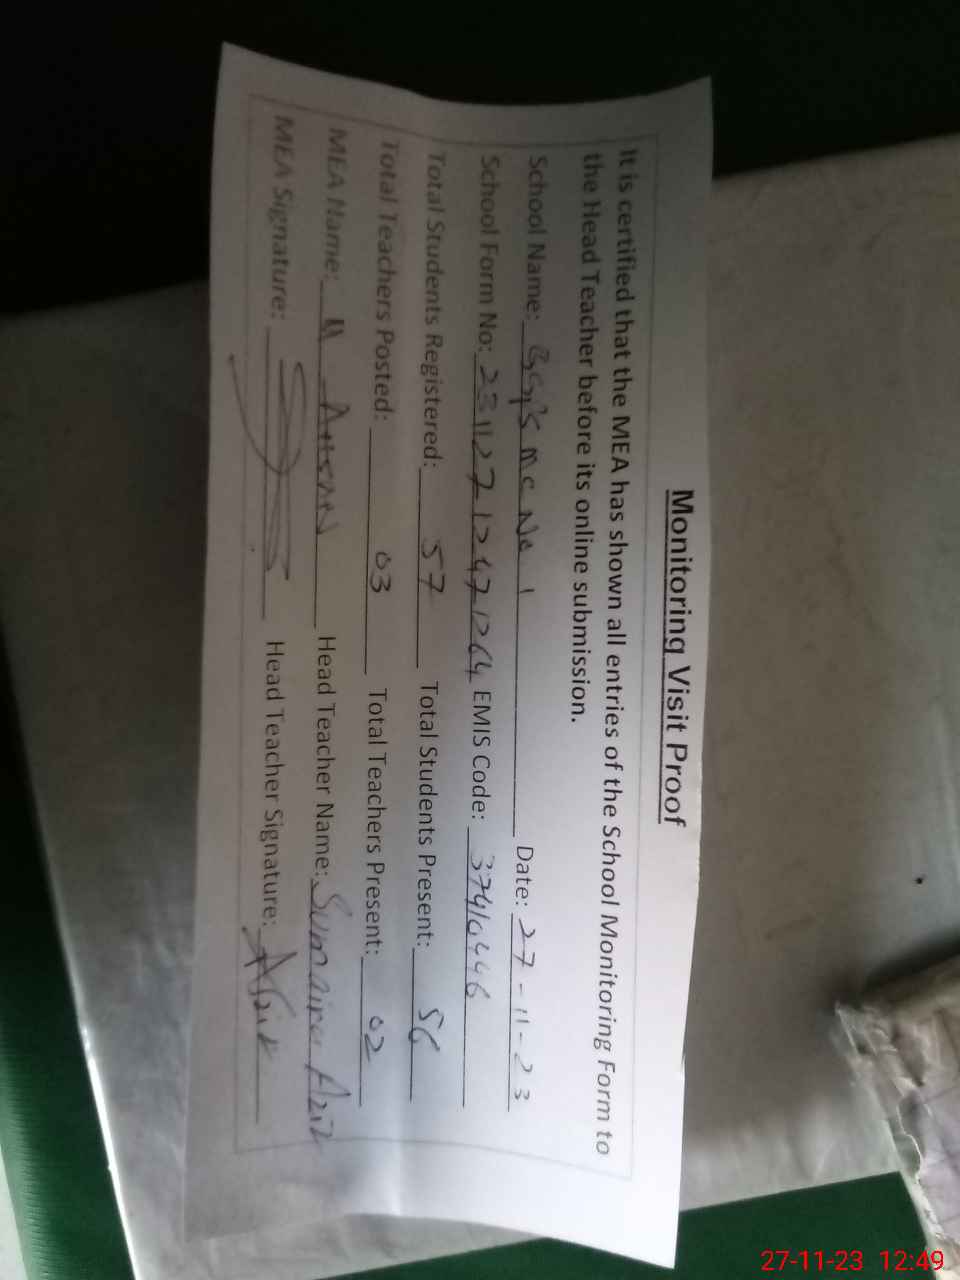 Monitoring Visit Proof
It is certified that the MEA has shown all entries of the School Monitoring Form to
the Head Teacher before its online submission.
School Name: GGPS MC No 1 Date: 27-11-23
School Form No: 23112712471264 EMIS Code: 37410446
Total Students Registered: 57 Total Students Present: 56
Total Teachers Posted: 03 Total Teachers Present: 02
MEA Name: M Ahsan Head Teacher Name: Sumaira Aziz
MEA Signature: Head Teacher Signature:
27-11-23 12:49